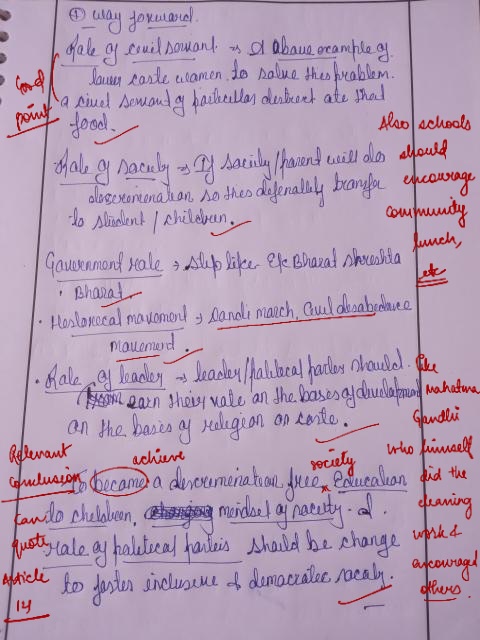 ④ way forward.
Role of civil servant → In above example of
lower caste women. to solve this problem.
a civil servant of particular district ate that
food.
Good
point
Also schools
should
encourage
community
lunch,
etc
Role of society → If society/parent will do
discremenation so this defenatlly transfer
to student / children.
Government role → step like Ek Bharat Shreshta
Bharat.
• Historecal movement → Dandi march, Civil disobedience
movement.
• Role of leader → leader/political parties should.
earn their vote on the bases of development
on the basis of religion or caste.
like
mahatma
Gandhi
who himself
did the
cleaning
work &
encouraged
others.
Relevant
conclusion
can
quote
Article
14
achieve
society
To became a descremenation free x Education
to cheldren, mindset of society.
role of political parteis should be change
to foster inclusive & democratec socaty.